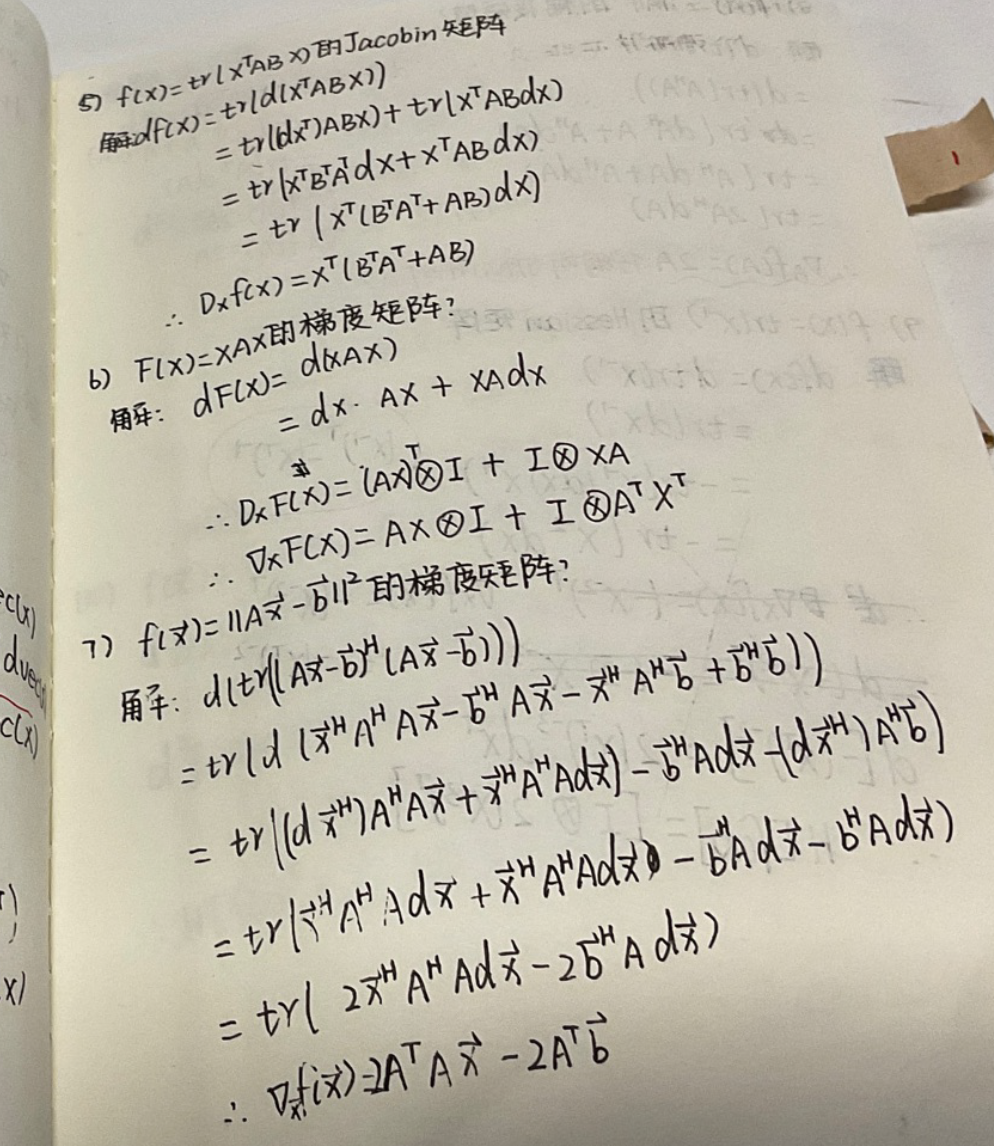 5) f(x)=tr(XᵀABX)的Jacobin矩阵
解:df(x)=tr(d(XᵀABX))
=tr((dXᵀ)ABX)+tr(XᵀABdX)
=tr(XᵀBᵀAᵀdX+XᵀABdX)
=tr(Xᵀ(BᵀAᵀ+AB)dX)
∴ Dₓf(x)=Xᵀ(BᵀAᵀ+AB)
6) F(X)=XAX的梯度矩阵?
解: dF(X)=d(XAX)
=dX·AX+XAdX
∴ DₓF(X)=(AX)ᵀ⊗I+I⊗XA
∴ ∇ₓF(X)=AX⊗I+I⊗AᵀXᵀ
7) f(x⃗)=||Ax⃗-b⃗||²的梯度矩阵?
解: d(tr((Ax⃗-b⃗)ᴴ(Ax⃗-b⃗)))
=tr(d(x⃗ᴴAᴴAx⃗-b⃗ᴴAx⃗-x⃗ᴴAᴴb⃗+b⃗ᴴb⃗))
=tr((dx⃗ᴴ)AᴴAx⃗+x⃗ᴴAᴴAdx⃗)-b⃗ᴴAdx⃗-(dx⃗ᴴ)Aᴴb⃗)
=tr(x⃗ᴴAᴴAdx⃗+x⃗ᴴAᴴAdx⃗)-b⃗ᴴAdx⃗-bᴴAdx⃗)
=tr(2x⃗ᴴAᴴAdx⃗-2b⃗ᴴAdx⃗)
∴ ∇x⃗f(x⃗)=2AᵀAx⃗-2Aᵀb⃗
c(x)
dvec
c(x)
x)